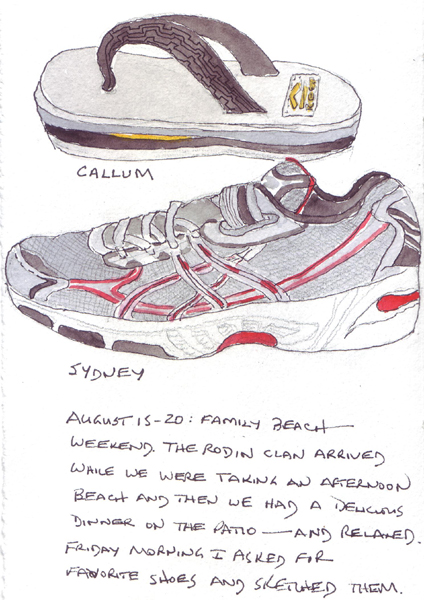 CALLUM
SYDNEY
AUGUST 15-20: FAMILY BEACH
WEEKEND. THE RODIN CLAN ARRIVED
WHILE WE WERE TAKING AN AFTERNOON
BEACH AND THEN WE HAD A DELICIOUS
DINNER ON THE PATIO — AND RELAXED.
FRIDAY MORNING I ASKED FOR
FAVORITE SHOES AND SKETCHED THEM.